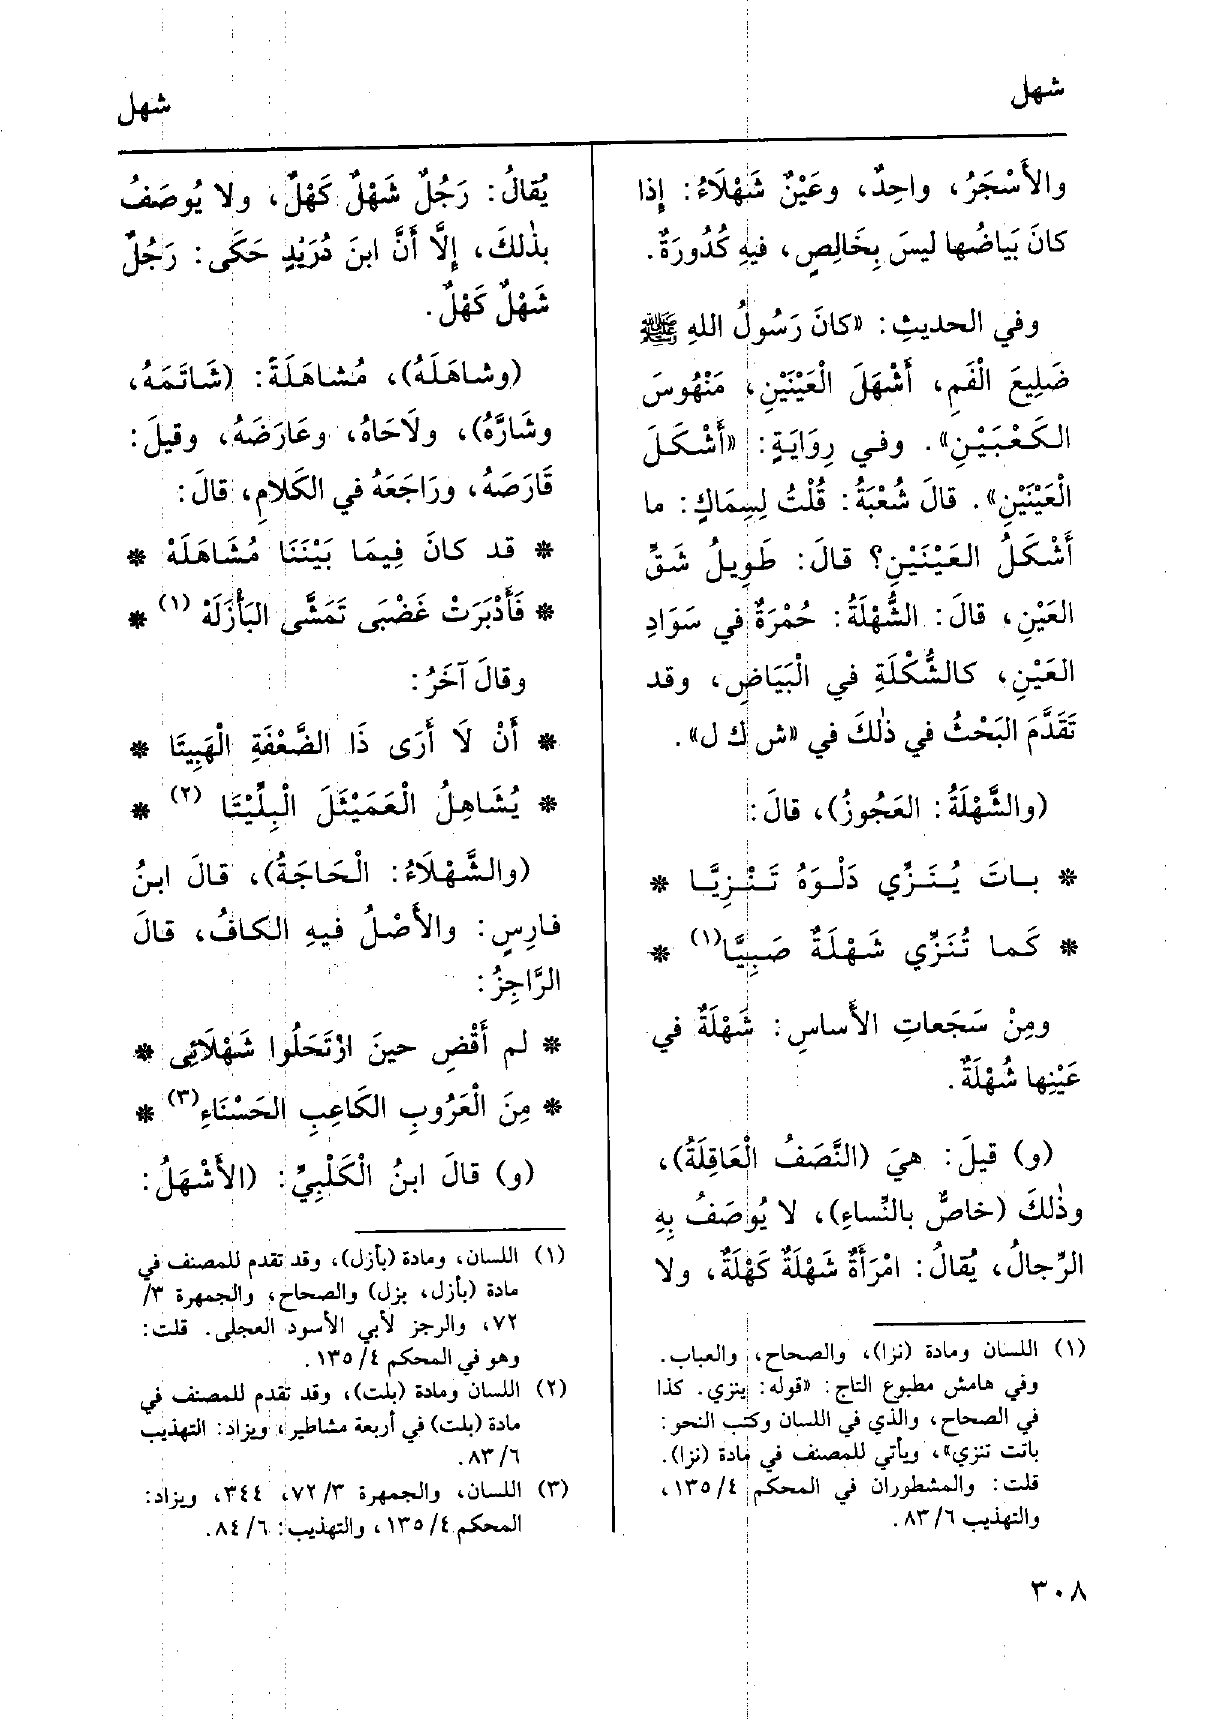 شهل
شهل
والأَسْجَرُ، واحِدٌ، وعَيْنٌ شَهْلَاءُ: إِذا
كانَ بَيَاضُها ليسَ بِخَالِصٍ، فيهِ كُدُورَةٌ.
وفي الحديثِ: «كانَ رَسُولُ اللهِ ﷺ
ضَلِيعَ الْفَمِ، أَشْهَلَ الْعَيْنَيْنِ، مَنْهُوسَ
الكَعْبَيْنِ». وفي رِوَايَةٍ: «أَشْكَلَ
الْعَيْنَيْنِ». قالَ شُعْبَةُ: قُلْتُ لِسِمَاكٍ: ما
أَشْكَلُ العَيْنَيْنِ؟ قالَ: طَوِيلُ شَقِّ
العَيْنِ، قالَ: الشُّهْلَةُ: حُمْرَةٌ في سَوَادِ
العَيْنِ، كالشُّكْلَةِ في الْبَيَاضِ، وقد
تَقَدَّمَ البَحْثُ في ذٰلكَ في «ش ك ل».
(والشَّهْلَةُ: العَجُوزُ)، قالَ:
* بـاتَ يُـنَـزِّي دَلْـوَهُ تَـنْـزِيَّـا *
* كَـما تُنَـزِّي شَـهْلَـةٌ صَـبِيَّا(١) *
ومِنْ سَجَعاتِ الأَساسِ: شَهْلَةٌ في
عَيْنِها شُهْلَةٌ.
(و) قيلَ: هيَ (النَّصَفُ الْعَاقِلَةُ)،
وذٰلكَ (خاصٌّ بالنِّساءِ)، لا يُوصَفُ بِهِ
الرِّجالُ، يُقالُ: امْرَأَةٌ شَهْلَةٌ كَهْلَةٌ، ولا
(١) اللسان ومادة (نزا)، والصحاح، والعباب.
وفي هامش مطبوع التاج: «قوله: ينزي. كذا
في الصحاح، والذي في اللسان وكتب النحو:
باتت تنزي»، ويأتي للمصنف في مادة (نزا).
قلت: والمشطوران في المحكم ٤/ ١٣٥،
والتهذيب ٦/ ٨٣.
يُقالُ: رَجُلٌ شَهْلٌ كَهْلٌ، ولا يُوصَفُ
بذٰلكَ، إِلَّا أَنَّ ابنَ دُرَيْدٍ حَكَى: رَجُلٌ
شَهْلٌ كَهْلٌ.
(وشاهَلَهُ)، مُشاهَلَةً: (شَاتَمَهُ،
وشَارَّهُ)، ولَاحَاهُ، وعَارَضَهُ، وقيلَ:
قَارَصَهُ، ورَاجَعَهُ في الكَلامِ، قالَ:
* قد كانَ فِيمَا بَيْنَنَا مُشَاهَلَهْ *
* فَأَدْبَرَتْ غَضْبَى تَمَشَّى البَأْزَلَهْ (١) *
وقالَ آخَرُ:
* أَنْ لَا أَرَى ذَا الضَّعْفَةِ الْهَبِيتَا *
* يُشَاهِلُ الْعَمَيْثَلَ الْبِلِّيْتَا (٢) *
(والشَّهْلَاءُ: الْحَاجَةُ)، قالَ ابنُ
فارِسٍ: والأَصْلُ فيهِ الكافُ، قالَ
الرَّاجِزُ:
* لم أَقْضِ حينَ ارْتَحَلُوا شَهْلَائِى *
* مِنَ الْعَرُوبِ الكَاعِبِ الحَسْنَاءِ(٣) *
(و) قالَ ابنُ الْكَلْبِيِّ: (الأَشْهَلُ:
(١) اللسان، ومادة (بأزل)، وقد تقدم للمصنف في
مادة (بأزل، بزل) والصحاح، والجمهرة ٣/
٧٢، والرجز لأبي الأسود العجلى. قلت:
وهو في المحكم ٤/ ١٣٥.
(٢) اللسان ومادة (بلت)، وقد تقدم للمصنف في
مادة (بلت) في أربعة مشاطير، ويزاد: التهذيب
٦/ ٨٣.
(٣) اللسان، والجمهرة ٣/ ٧٢، ٣٤٤، ويزاد:
المحكم ٤/ ١٣٥، والتهذيب: ٦/ ٨٤.
٣٠٨